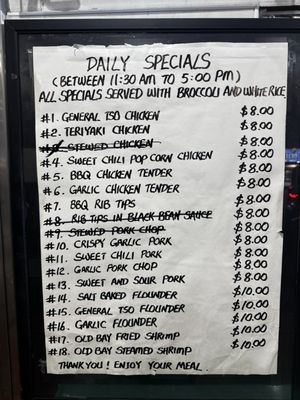 DAILY SPECIALS
(BETWEEN 11:30 AM TO 5:00 PM)
ALL SPECIALS SERVED WITH BROCCOLI AND WHITE RICE
#1. GENERAL TSO CHICKEN $8.00
#2. TERIYAKI CHICKEN $8.00
#3. STEWED CHICKEN $8.00
#4. SWEET CHILI POP CORN CHICKEN $8.00
#5. BBQ CHICKEN TENDER $8.00
#6. GARLIC CHICKEN TENDER $8.00
#7. BBQ RIB TIPS $8.00
#8. RIB TIPS IN BLACK BEAN SAUCE $8.00
#9. STEWED PORK CHOP $8.00
#10. CRISPY GARLIC PORK $8.00
#11. SWEET CHILI PORK $8.00
#12. GARLIC PORK CHOP $8.00
#13. SWEET AND SOUR PORK $8.00
#14. SALT BAKED FLOUNDER $10.00
#15. GENERAL TSO FLOUNDER $10.00
#16. GARLIC FLOUNDER $10.00
#17. OLD BAY FRIED SHRIMP $10.00
#18. OLD BAY STEAMED SHRIMP $10.00
THANK YOU! ENJOY YOUR MEAL.